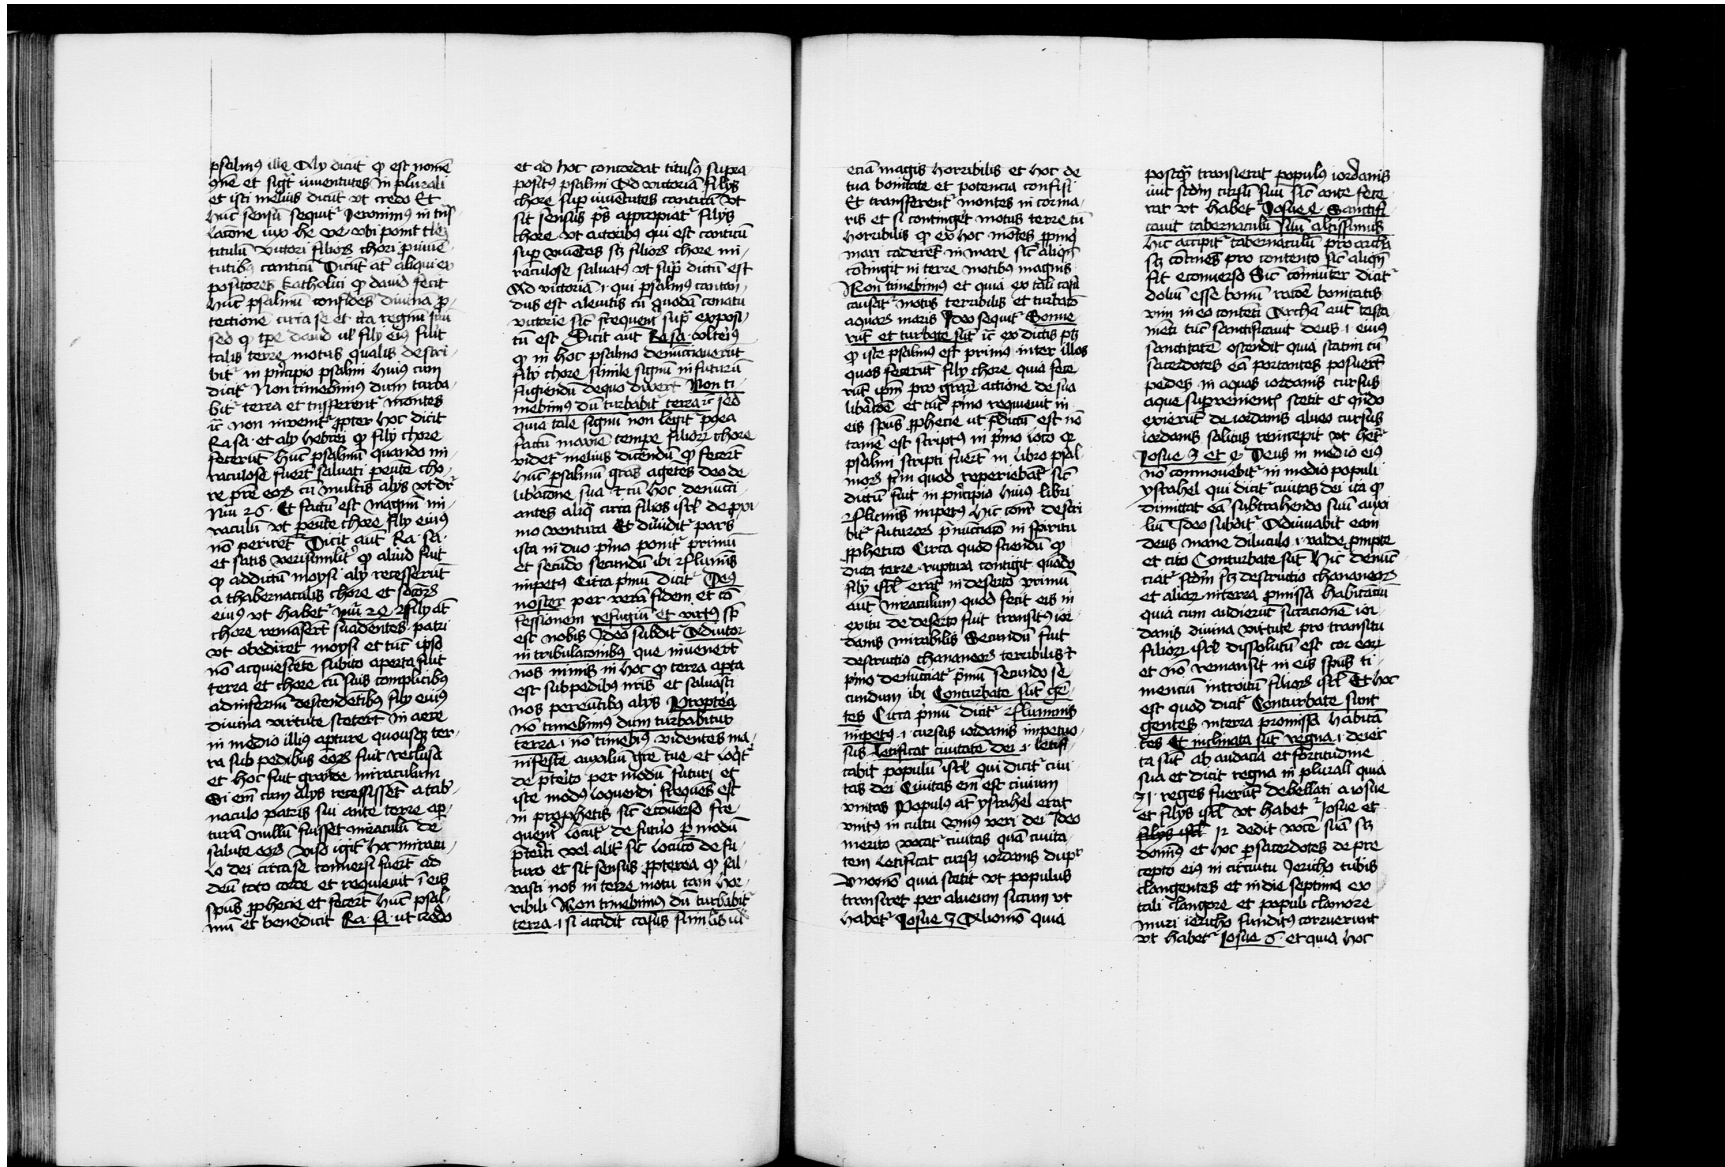 psalmꝰ ille Aly dicūt ꝙ est nomē
ꝯuē et sigᷓt iuuentutes in plurali
et isti melius dicūt vt credo Et
hūc sensū sequitᷣ Jeronimus in tnͣſ
lacōne iuxᵃ he ve vbi ponit
titulū victori filioꝝ chori ꝓ iuuē
tutibꝰ canticū Dicūt aūt aliqui ex
positores katholici ꝙ dauid fecit
hūc psalmū confidēs diuina ꝓ
tectione circa se et circa regnū suū
sed ꝙ tꝑe dauid uł filij eiꝰ fuit
talis terre motus qualis descri
bitᷣ in prīcipio psalmi huius cum
dicitᷣ Non timebimus dum turba
bitᷣ terra et trāsferent montes
ic̄ non inuenitᷣ ꝓpter hoc dicit
Ra sa · et alij hebrei ꝙ filij chore
fecerūt hūc psalmū quando mi
raculose fuerūt saluati pereūte cho
re p̄re eoꝝ cū multis alijs vt dr̄
Nūi 26 · Et factū est magnū mi
raculū vt pereūte chore filij eius
nō perirēt Dicit aūt Ra · sa ·
et satis verisimiliter ꝙ aliud fuit
ꝙ addictū moysi alij recesserūt
a thabernaculis chore et socioꝝ
eius vt habetᷣ nūi 26 filij āt
chore remāserūt suadentes patri
vt obediret moysi et tūc ipso
nō acquiescēte subito aperta fuit
terra et chore cū suis complicibꝰ
ad infernū descendētibꝰ filij eius
diuina virtute steterūt in aere
in medio illiꝰ aꝑture quousqꝫ ter
ra sub pedibus eoꝝ fuit reclusa
et hoc fuit grande miraculum
Si em̄ cum alijs recessissēt a tab
naculo patris sui ante terre aꝑ
turā nullū fuisset miraculū de
salute eoꝝ Viso igitᷣ hoc miracu
lo dei circa se conuersi fuerūt ad
deū toto corde et requieuit ī eis
spūs ꝓphecie et fecerūt hūc psal
mū et benedicit Ra · sa · ut credo
et ad hoc concordat titulꝰ supra
positꝰ psalmi Ad victoriā filijs
chore suꝑ iuuētutes canticū vt
sit sensus p̄s appropriatᷣ filijs
chore vt actoribꝰ qui est canticū
suꝑ iuuētes scꝫ filios chore mi
raculose saluatꝰ vt supᷓ dictū est
Ad victoriā · i · qui psalmꝰ cantan
dus est a leuitis cū quodā conatu
victorie sic̄ frequentᷣ supᷓ exposi
tū est Dicit aūt Ra sa
ꝙ in hoc psalmo denūciauerūt
filij chore simile signū in futurū
fugiendū de quo dixerūt Non ti
mebimꝰ dū turbabitᷣ terra ⁊c̄ sed
quia tale signū non legitᷣ postea
factū maxime tempe filioꝝ chore
videtᷣ melius dicendū ꝙ fecerūt
hūc psalmū gr̄as agētes deo de
libacōne sua ⁊ cū hoc denūci
antes aliqᷓ circa filios isrł de pxi
mo ventura Et diuidit pars
ista in duo pͥmo ponitᷣ primū
et secūdo secundū ibi Fluminis
impetꝰ Circa pͥmū dicitᷣ Deus
noster per verā fidem et cō
fessionem refugiū et virtꝰ sic̄
est nobis Ideo subdit Adiutor
in tribulacōnibꝰ que inuenerūt
nos nimis in hoc ꝙ terra aꝑta
est sub pedibus nr̄is et saluasti
nos pereūtibꝰ alijs Propterea
nō timebimus dum turbabitur
terra · i · nō timebimꝰ videntes ma
nifeste auxiliū gr̄e tue et loqtᷣ
de p̄terito per modū futuri et
iste modꝰ loquendi frequēs est
in prophetis sic̄ econuerso fre
quentᷣ locūt de futuro ꝑ modū
p̄teriti vel alitᷣ sic̄ locūto de fu
turo et sit sensus ꝓpterea ꝙ sal
vasti nos in terre motu tam hor
ribili Non timebimꝰ dū turbabitᷣ
terra · i · si accidit casus similis uł
eciā magis horribilis et hoc de
tua bonitate et potencia confisi
Et transferent montes in cor ma
ris et si contingēt motus terre tū
horribilis ꝙ ex hoc mōtes ꝓpinqͥ
mari caderēt in mare sic̄ aliqn̄
cōtingit in terre motibꝰ magnis
Non timebimus et quia ex tali casu
causatᷣ motus terribilis et turbatō
aquaꝝ maris Ideo sequitᷣ Sonue
rūt et turbate sūt ic̄ ex dictis ptꝫ
ꝙ iste psalmus est primꝰ inter illos
quos fecerūt filij chore quia fece
rūt ipm̄ pro gr̄aꝝ actione de sua
libacōne et tūc pͥmo requieuit in
eis spūs ꝓphecie ut p̄dictū est nō
tamē est scriptꝰ in pͥmo loco qꝛ
psalmi scripti fuerūt in libro psal
moꝝ fm̄ quod reperiebātᷣ sic̄
dictū fuit in prīcipio huius libri
Fluminis impetus Hic cōnrᷣ descri
bitᷣ futuroꝝ p̄nūciacō in spiritu
ꝓphetico Circa quod sciendū ꝙ
dicta terre ruptura contigit quādo
filij isrł erāt in deserto primū
aūt miraculum quod fecit eis in
exitu de deserto fuit transitꝰ ior
danis mirabilis Secundū fuit
destructio chananeoꝝ terribilis ⁊
pͥmo denūciatᷣ pͥmū secundo se
cundum ibi Conturbate sūt gē
tes Circa pͥmū dicitᷣ Fluminis
impetꝰ · i · cursus iordanis impetuo
sus Letificat ciuitatē dei · i · letifi
cabit populū isrł qui dicitᷣ ciui
tas dei Ciuitas em̄ est ciuium
vnitas Populꝰ āt ysrahel erat
vnitꝰ in cultu vniꝰ veri dei Ideo
merito vocatᷣ ciuitas quā ciuita
tem letificat cursꝰ iordanis dupᷣ
Vnomō quia stetit vt populus
transiret per alueum siccum vt
habetᷣ Josue 3 Aliomō quia
postqᷓ transierat populꝰ iordanis
iuit scdm cursū suū sic̄ ante fece
rat vt habetᷣ Josue 4 Sanctifi
cauit tabernaculū suū altissimus
hic accipitᷣ tabernaculū pro archa
scꝫ cōtinēs pro contento sic̄ aliqn̄
fit econuerso Sic comūiter dicitᷣ
doliū esse bonū racōe bonitatis
vini in eo contēti Archā aūt testa
mēti tūc sanctificauit deus · i · eiꝰ
sanctitatē ostendit quia statim cū
sacerdotes eā portantes posuerūt
pedes in aquas iordanis cursus
aque superuenientis stetit et qn̄do
exierūt de iordanis alueo cursus
iordanis solitus reincepit vt hetᷣ
Josue 3 et 4 Deus in medio eiꝰ
nō commouebitᷣ in medio populi
ysrahel qui dicitᷣ ciuitas dei ita ꝙ
dimittat eā subtrahendo suū auxi
liū Ideo subditᷣ Adiuuabit eam
deus mane diluculo · i · valde ꝓmpte
et cito Conturbate sūt Hic denūc
ciatᷣ scdm scꝫ destructio chananeoꝝ
et alioꝝ in terra ꝓmissa habitātiū
quia cum audierūt siccacionē ior
danis diuina virtute pro transitu
filioꝝ isrł dissolutū est cor eoꝝ
et nō remansit in eis spūs ti
mencium introitū filioꝝ isrł Et hoc
est quod dicitᷣ Conturbate sunt
gentes in terra promissa habitā
tes Et inclinata sūt regna · i · deiec
ta sūt ab audacia et fortitudine
sua et dicit regna in plurali quia
31 · reges fuerūt debellati a iosue
et filijs isrł vt habetᷣ Josue et
filijs isrł 12 dedit vocē suā scꝫ
dominꝰ et hoc ꝑ sacerdotes de pre
cepto eiꝰ in circuitu Jericho tubis
clangentes et in die septima ex
tali clangore et populi clamore
muri iericho funditꝰ corruerunt
vt habetᷣ Josue 6 · et quia hoc